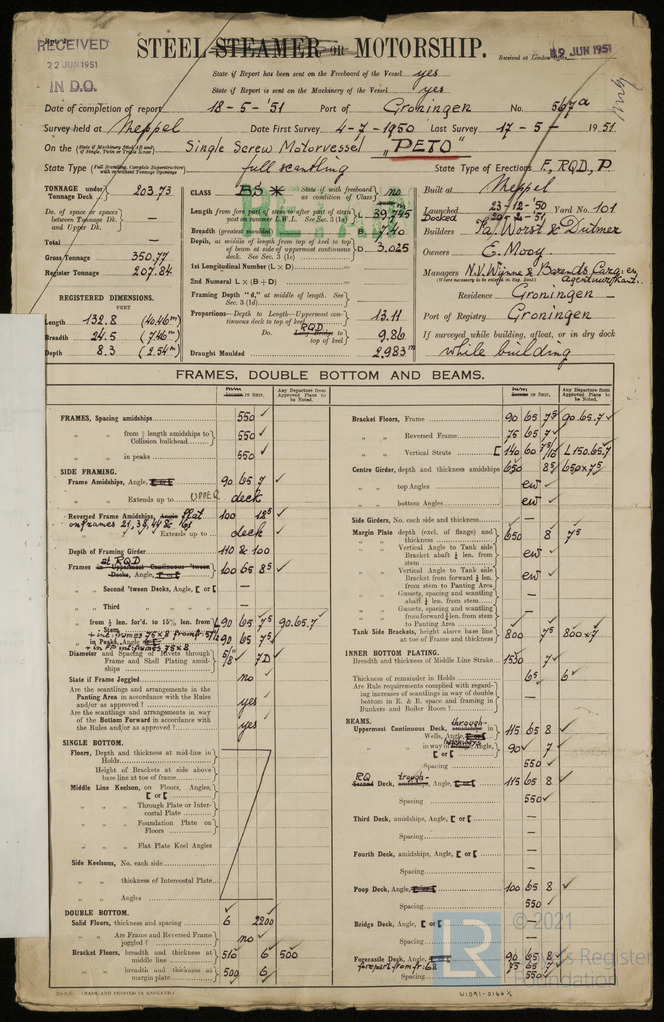 RECEIVED
22 JUN 1951
IN D.O.
STEEL STEAMER OR MOTORSHIP.
Received at London Office
19 JUN 1951
State if Report has been sent on the Freeboard of the Vessel yes
State if Report is sent on the Machinery of the Vessel yes
Date of completion of report 18-5-'51 Port of Groningen No. 567a
Survey held at Meppel Date First Survey 4-7-1950 Last Survey 17-5- 1951
On the (State if Machinery fitted Aft and if Single, Twin or Triple Screw) Single Screw Motorvessel "PETO"
State Type (Full Scantling, Complete Superstructure with or without Tonnage Openings) full scantling State Type of Erections F, RQD, P
TONNAGE under Tonnage Deck 203.73
Do. of space or spaces between Tonnage Dk. and Upper Dk. —
Total —
Gross Tonnage 350.77
Register Tonnage 207.84
REGISTERED DIMENSIONS.
FEET
Length 132.8 (40.46m)
Breadth 24.5 (7.46m)
Depth 8.3 (2.54m)
CLASS BS * State if with freeboard as condition of Class no
Length from fore part of stem to after part of stern post on summer L.W.L. See Sec. 3 (1a) L 39,745
Breadth (greatest moulded) B 7.40
Depth, at middle of length from top of keel to top of beam at side of uppermost continuous deck. See Sec. 3 (1c) D 3.025
1st Longitudinal Number (L × D)
2nd Numeral L × (B + D)
Framing Depth "d," at middle of length. See Sec. 3 (1d)
Proportions—Depth to Length—Uppermost continuous deck to top of keel 13.11
Do. RQD Long Bridge to top of keel 9.86
Draught Moulded 2,983m
Built at Meppel
Launched 23-12-'50 Yard No. 101
Docked
Builders Fa. Worst & Dutmer
Owners E. Mooy
Managers N.V. Wijnne & Barends Cargo en Agentuurkant.
(Where necessary to be entered in Reg. Book)
Residence Groningen
Port of Registry Groningen
If surveyed while building, afloat, or in dry dock
while building
FRAMES, DOUBLE BOTTOM AND BEAMS.
Any Departure from Approved Plans to be Noted.
FRAMES, Spacing amidships 550
" " from ⅕ length amidships to Collision bulkhead 550
" " in peaks 550
SIDE FRAMING.
Frame Amidships, Angle, 90 65 7
" " Extends up to UPPER deck
Reversed Frame Amidships, Angle Flat 100 12⁵
on frames 21, 38, 44 &
" " Extends up to deck
Depth of Framing Girder 110 & 100
at RQD
Frames in Uppermost Continuous 'tween Decks, Angle, 100 65 8⁵
" Second 'tween Decks, Angle, [ or [ —
" Third " " " —
" from ⅕ len. for'd. to 15% len. from Stem 90 65 7⁵ 90.65.7
" in Peaks, Angle 90 65 7⁵
Diameter and Spacing of Rivets through Frame and Shell Plating amidships 5/8" 7D
State if Frame Joggled no
Are the scantlings and arrangements in the Panting Area in accordance with the Rules and/or as approved? yes
Are the scantlings and arrangements in way of the Bottom Forward in accordance with the Rules and/or as approved? yes
SINGLE BOTTOM.
Floors, Depth and thickness at mid-line in Holds
Height of Brackets at side above base line at toe of frame
Middle Line Keelson, on Floors, Angles, [ or [
" " Through Plate or Intercostal Plate
" " Foundation Plate on Floors
" " Flat Plate Keel Angles
Side Keelsons, No. each side
" " thickness of Intercostal Plate
" " Angles
DOUBLE BOTTOM.
Solid Floors, thickness and spacing 6 2200
" " Are Frame and Reversed Frame joggled? no
Bracket Floors, breadth and thickness at middle line 510 6 500
" " breadth and thickness at margin plate 500 6
Any Departure from Approved Plans to be Noted.
Bracket Floors, Frame 90 65 7⁵ 90.65.7
" " Reversed Frame 75 65 7
" " Vertical Struts [ 140 60 L150.65.7
Centre Girder, depth and thickness amidships 650 8⁵ 650x7⁵
" " top Angles ew
" " bottom Angles ew
Side Girders, No. each side and thickness —
Margin Plate depth (excl. of flange) and thickness 650 8 7⁵
" " Vertical Angle to Tank side Bracket abaft ¼ len. from stem ew
" " Vertical Angle to Tank side Bracket from forward ¼ len. from stem to Panting Area ew
" " Gussets, spacing and scantling abaft ¼ len. from stem —
" " Gussets, spacing and scantling from forward ¼ len. from stem to Panting Area —
Tank Side Brackets, height above base line at toe of Frame and thickness 800 7⁵ 800x7
INNER BOTTOM PLATING.
Breadth and thickness of Middle Line Strake 1530 7
Thickness of remainder in Holds 6⁵ 6
Are Rule requirements complied with regarding increases of scantlings in way of double bottom in E. & B. space and framing in Bunkers and Boiler Room? —
BEAMS.
Uppermost Continuous Deck, through- in Wells, Angle, 115 65 8
" " in way of Bridge, Angle, [ or [ 90 7
Spacing 550
RQ Second Deck, through- amidships, Angle, 115 65 8
Spacing 550
Third Deck, amidships, Angle, [ or [ —
Spacing —
Fourth Deck, amidships, Angle, [ or [ —
Spacing —
Poop Deck, Angle, 100 65 8
Spacing 550
Bridge Deck, Angle, [ or [ —
Spacing —
Forecastle Deck, Angle, 90 65 8
forepart from fr: 68 75 65 7
Spacing 550
(MADE AND PRINTED IN ENGLAND.)
W1091-0166½
LR
© 2021
Lloyd's Register
Foundation